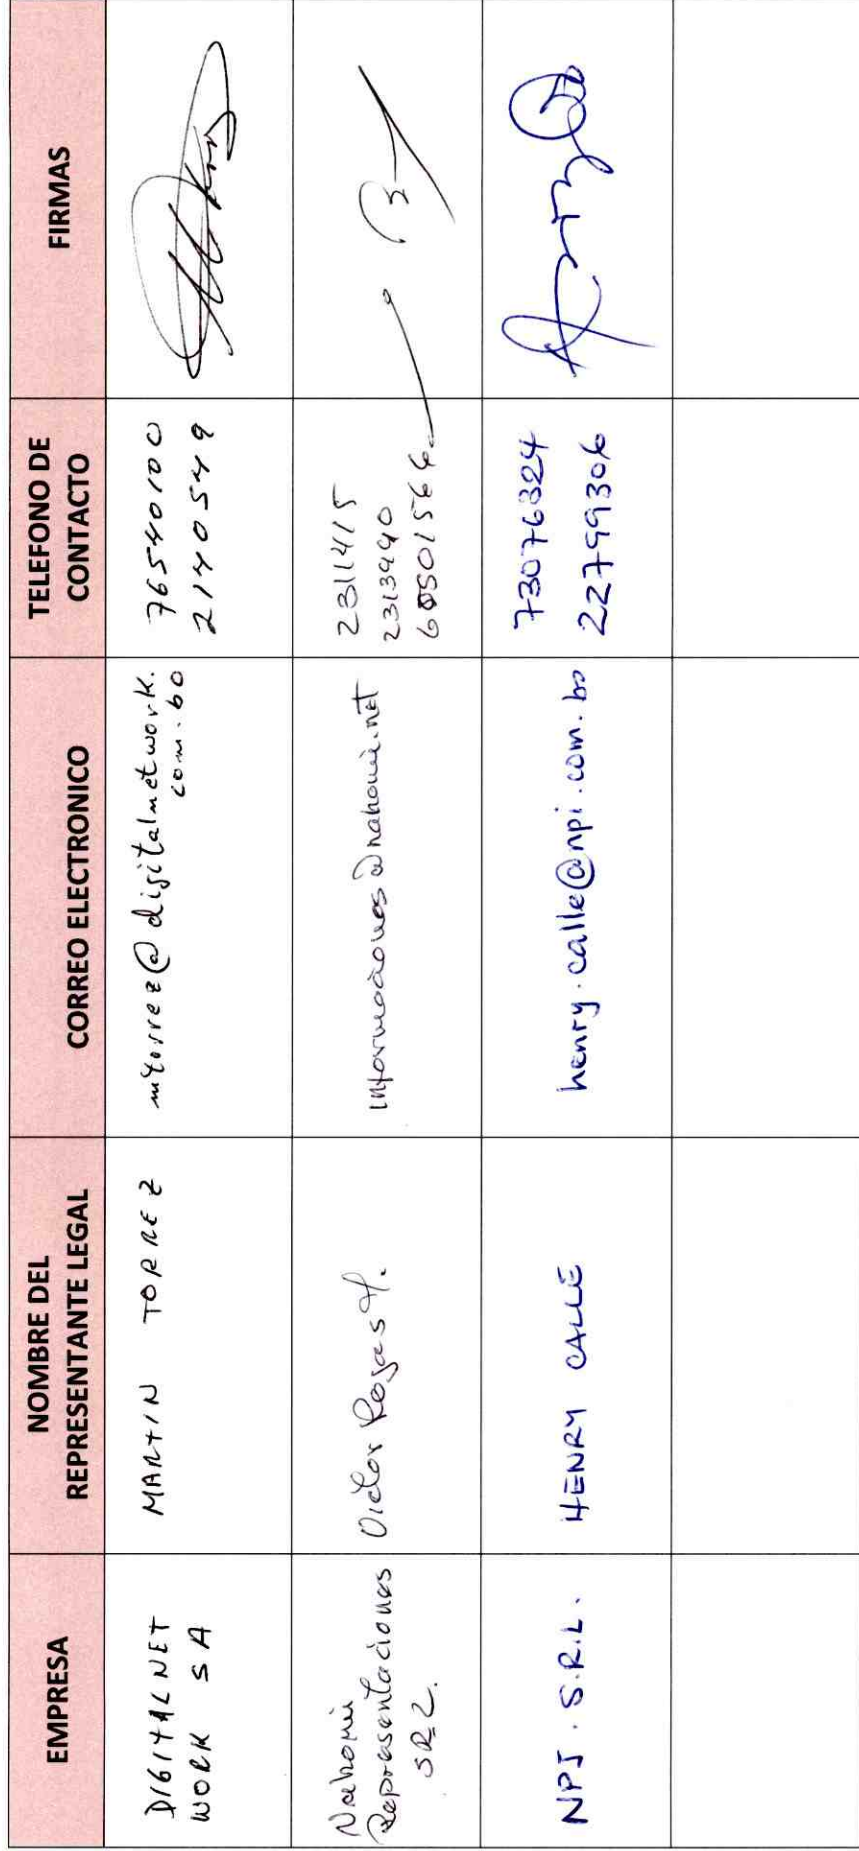 EMPRESA
NOMBRE DEL
REPRESENTANTE LEGAL
CORREO ELECTRONICO
TELEFONO DE
CONTACTO
FIRMAS
DIGITALNET
WORK SA
MARTIN TORREZ
mtorrez@digitalnetwork.
com.bo
76540100
2140549
Nahomi
Representaciones
SRL.
Victor Rojas H.
informaciones@nahomi.net
2311415
2313440
NPI. S.R.L.
HENRY CALLE
henry.calle@npi.com.bo
73076324
22799306